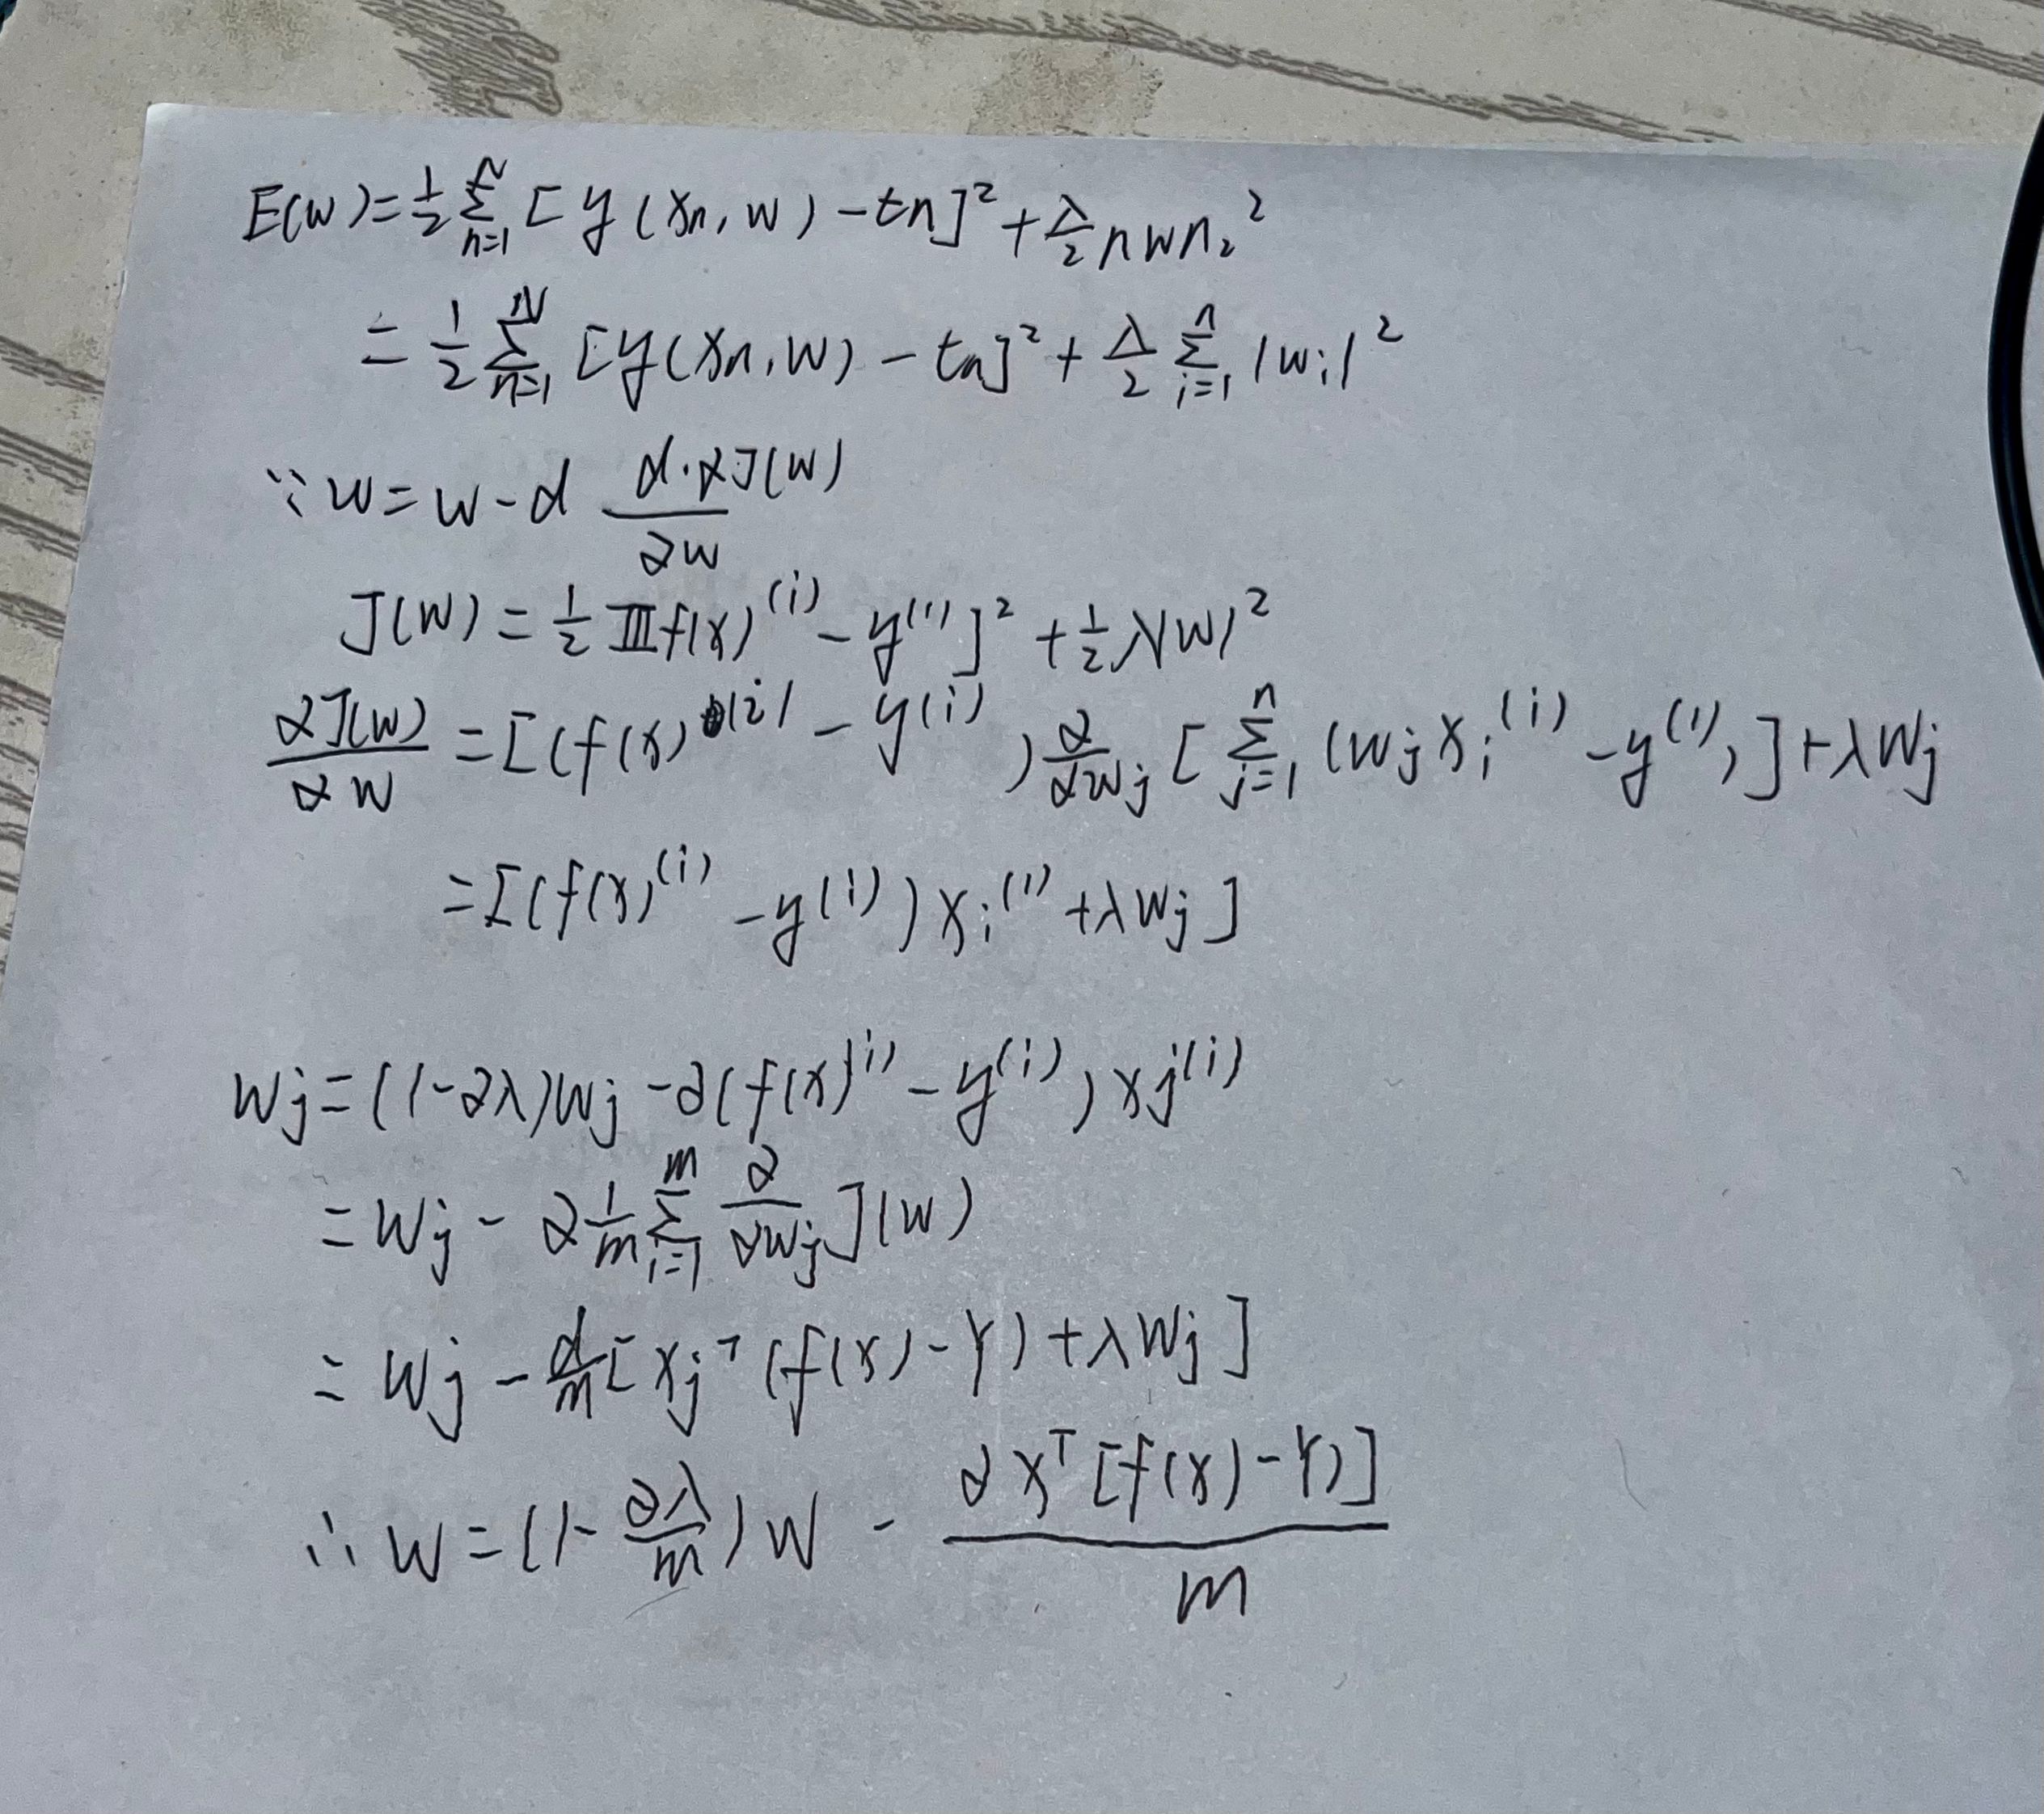 E(w)=½ Σ_{n=1}^{N} [y(xn, w) - tn]² + λ/2 ∩w∩₂²
= 1/2 Σ_{n=1}^{N} [y(xn, w) - tn]² + λ/2 Σ_{i=1}^{n} |wi|²
∵ w = w - α α·∂J(w)/∂w
J(w) = 1/2 [[[f(x)^(i) - y^(i)]² + 1/2 λ|w|²
∂J(w)/∂w = [(f(x)^(i) - y^(i)) ∂/∂wj [Σ_{j=1}^{n} (wj xi^(i) - y^(i))] + λwj
= [(f(x)^(i) - y^(i)) xi^(i) + λwj]
wj = (1-∂λ)wj - ∂(f(x)^(i) - y^(i)) xj^(i)
= wj - ∂ 1/m Σ_{i=1}^{m} ∂/∂wj J(w)
= wj - α/m [xj^T (f(x) - Y) + λwj]
∴ w = (1 - ∂λ/m) w - ∂X^T [f(x) - Y)] / m